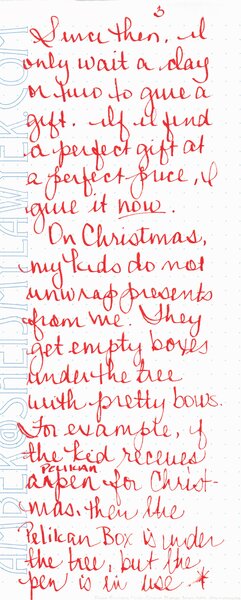 3
Since then, I
only wait a day
or two to give a
gift. If I find
a perfect gift at
a perfect price, I
give it now.
On Christmas,
my kids do not
unwrap presents
from me. They
get empty boxes
under the tree
with pretty bows.
For example, if
the kid receives
PELIKAN
a pen for Christ-
mas, then the
Pelikan Box is under
the tree, but the
pen is in use. *
AMBER@SHEISMYLAWYER.COM